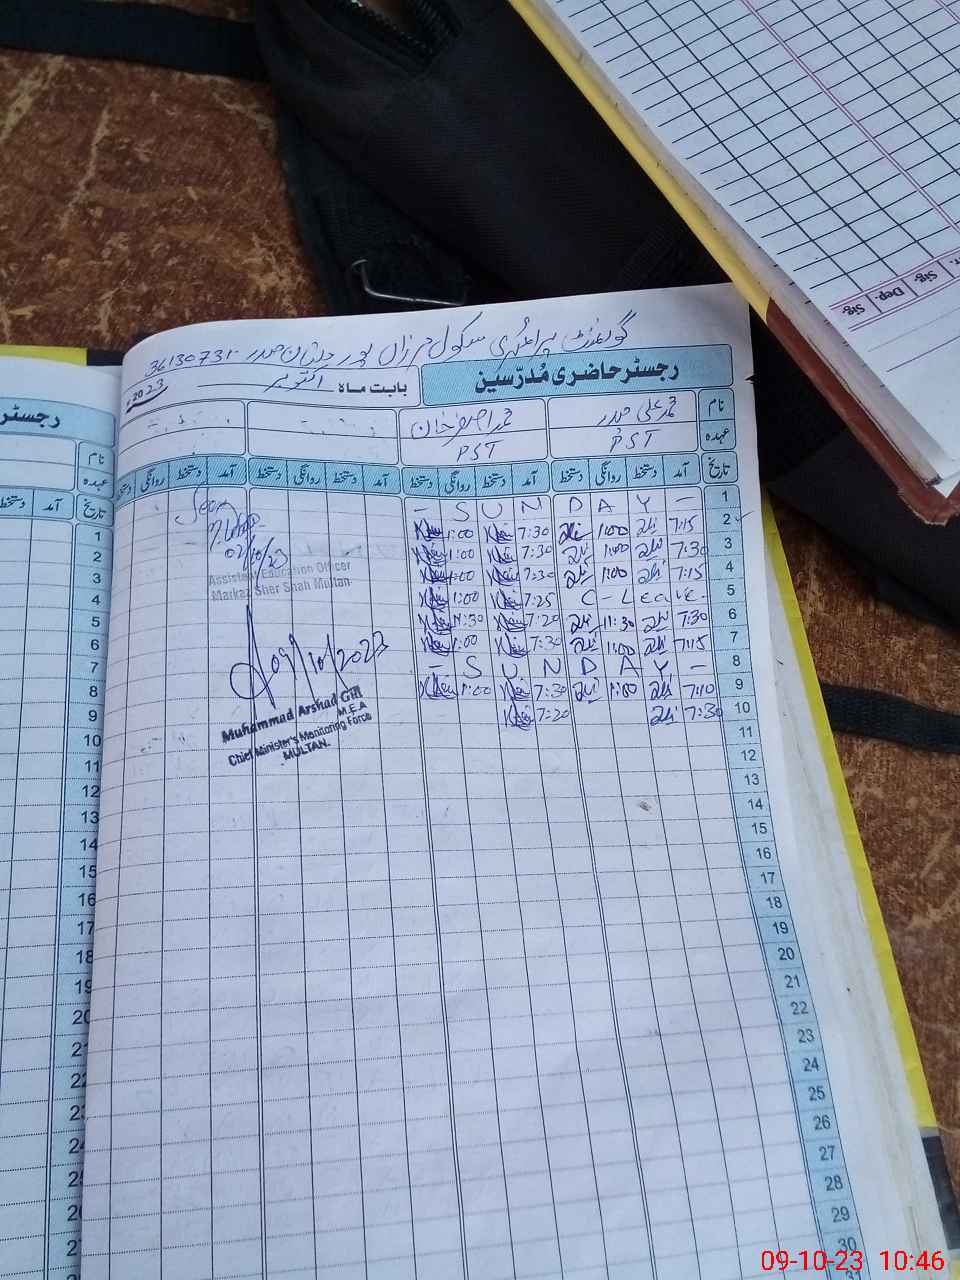 گورنمنٹ پرائمری سکول مرزان پور ملتان صدر 36130731
رجسٹر حاضری مُدرّسین
بابت ماہ اکتوبر 2023
نام محمد علی حیدر محمد اصغر خان
عہدہ PST PST
تاریخ آمد دستخط روانگی دستخط آمد دستخط روانگی دستخط آمد دستخط روانگی دستخط آمد دستخط روانگی دستخط
1 - SUNDAY -
2 7:15 علی 1:00 علی 7:30 1:00
3 7:30 علی 1:00 علی 7:30 1:00
4 7:15 علی 1:00 علی 7:30 1:00
5 C-Leave. 7:25 1:00
6 7:30 علی 11:30 علی 7:20 11:30
7 7:15 علی 1:00 علی 7:30 1:00
8 - SUNDAY -
9 7:10 علی 1:00 علی 7:30 1:00
10 7:30 علی 7:20
11
12
13
14
15
16
17
18
19
20
21
22
23
24
25
26
27
28
29
30
31
Seen
02/10/23
Assistant Education Officer
Markaz Sher Shah Multan
09/10/2023
Muhammad Arshad Gill
M.E.A
Chief Minister's Monitoring Force
MULTAN.
رجسٹر
نام
عہدہ
تاریخ آمد دستخط
1
2
3
4
5
6
7
8
9
10
11
12
13
14
15
16
17
18
Sig.
Dep.
Sig.
09-10-23 10:46